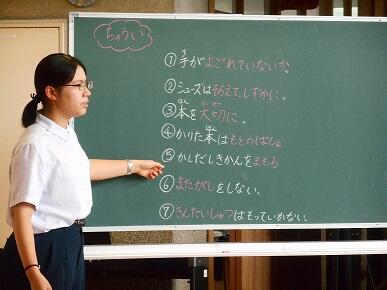 ちゅうい
①手がよごれていないか。
②シューズはそろえて、しずかに。
③本を大切に。
④かりた本はもとのばしょ
⑤かしだしきかんをまもる
⑥またがしをしない。
⑦きんたいしゅつはもっていかない。